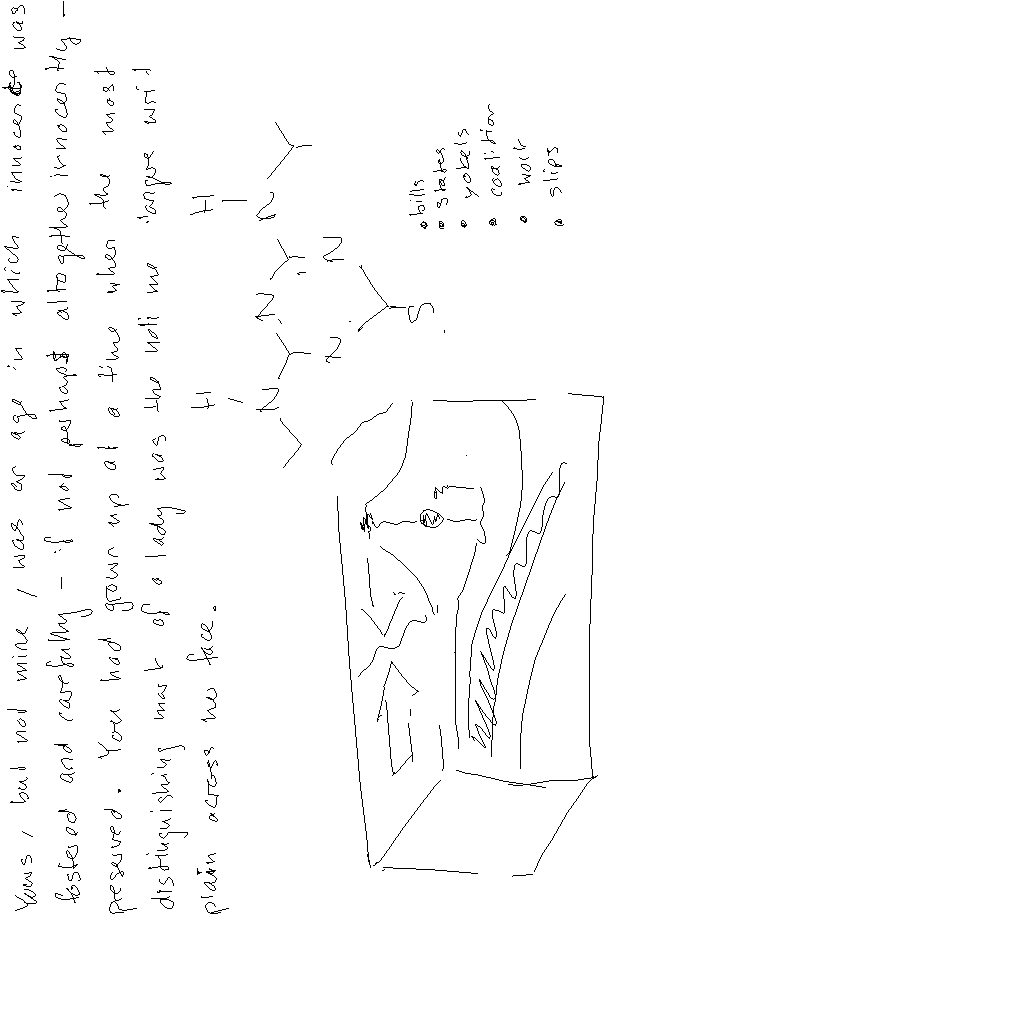 Yours, but not mine, was an age in which innocence was
fostered and carefully - if not perhaps altogether innocently -
preserved. You had grown up at a time when the most
distinguishing mark of a lady was the noli me tangere writ
plain across her face.
H H
N N N
N N
S
• bills
• states
• yokels
• coalition
• work
• slips